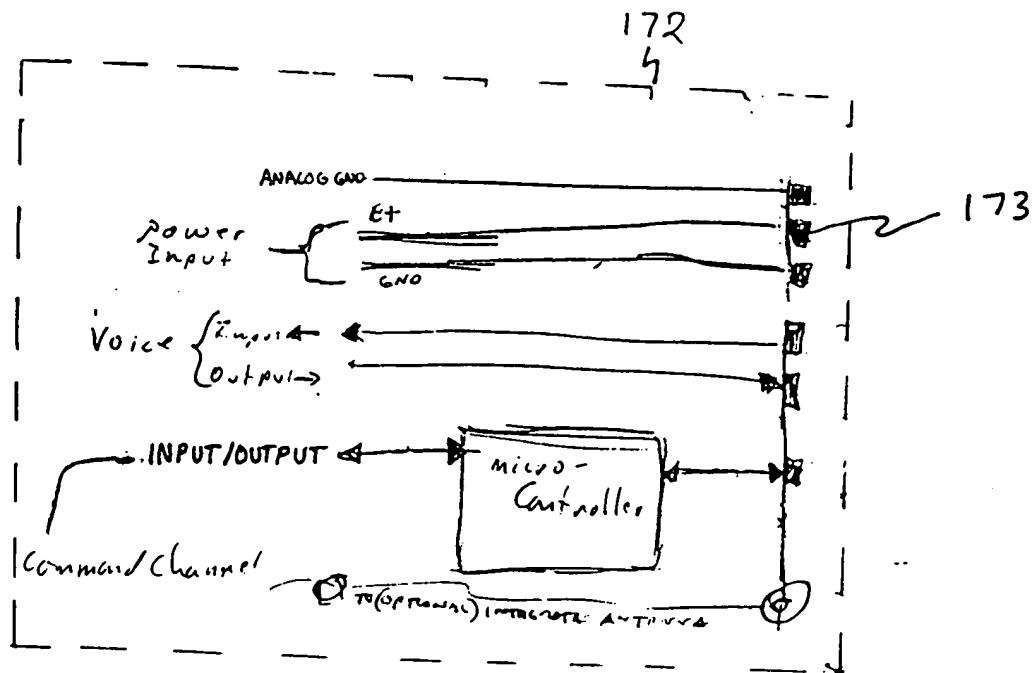 172
ANALOG GND
173
E+
Power
Input
GND
Voice
Input
Output
INPUT/OUTPUT
micro-
Controller
Command Channel
TO (OPTIONAL) INTEGRATE ANTENNA